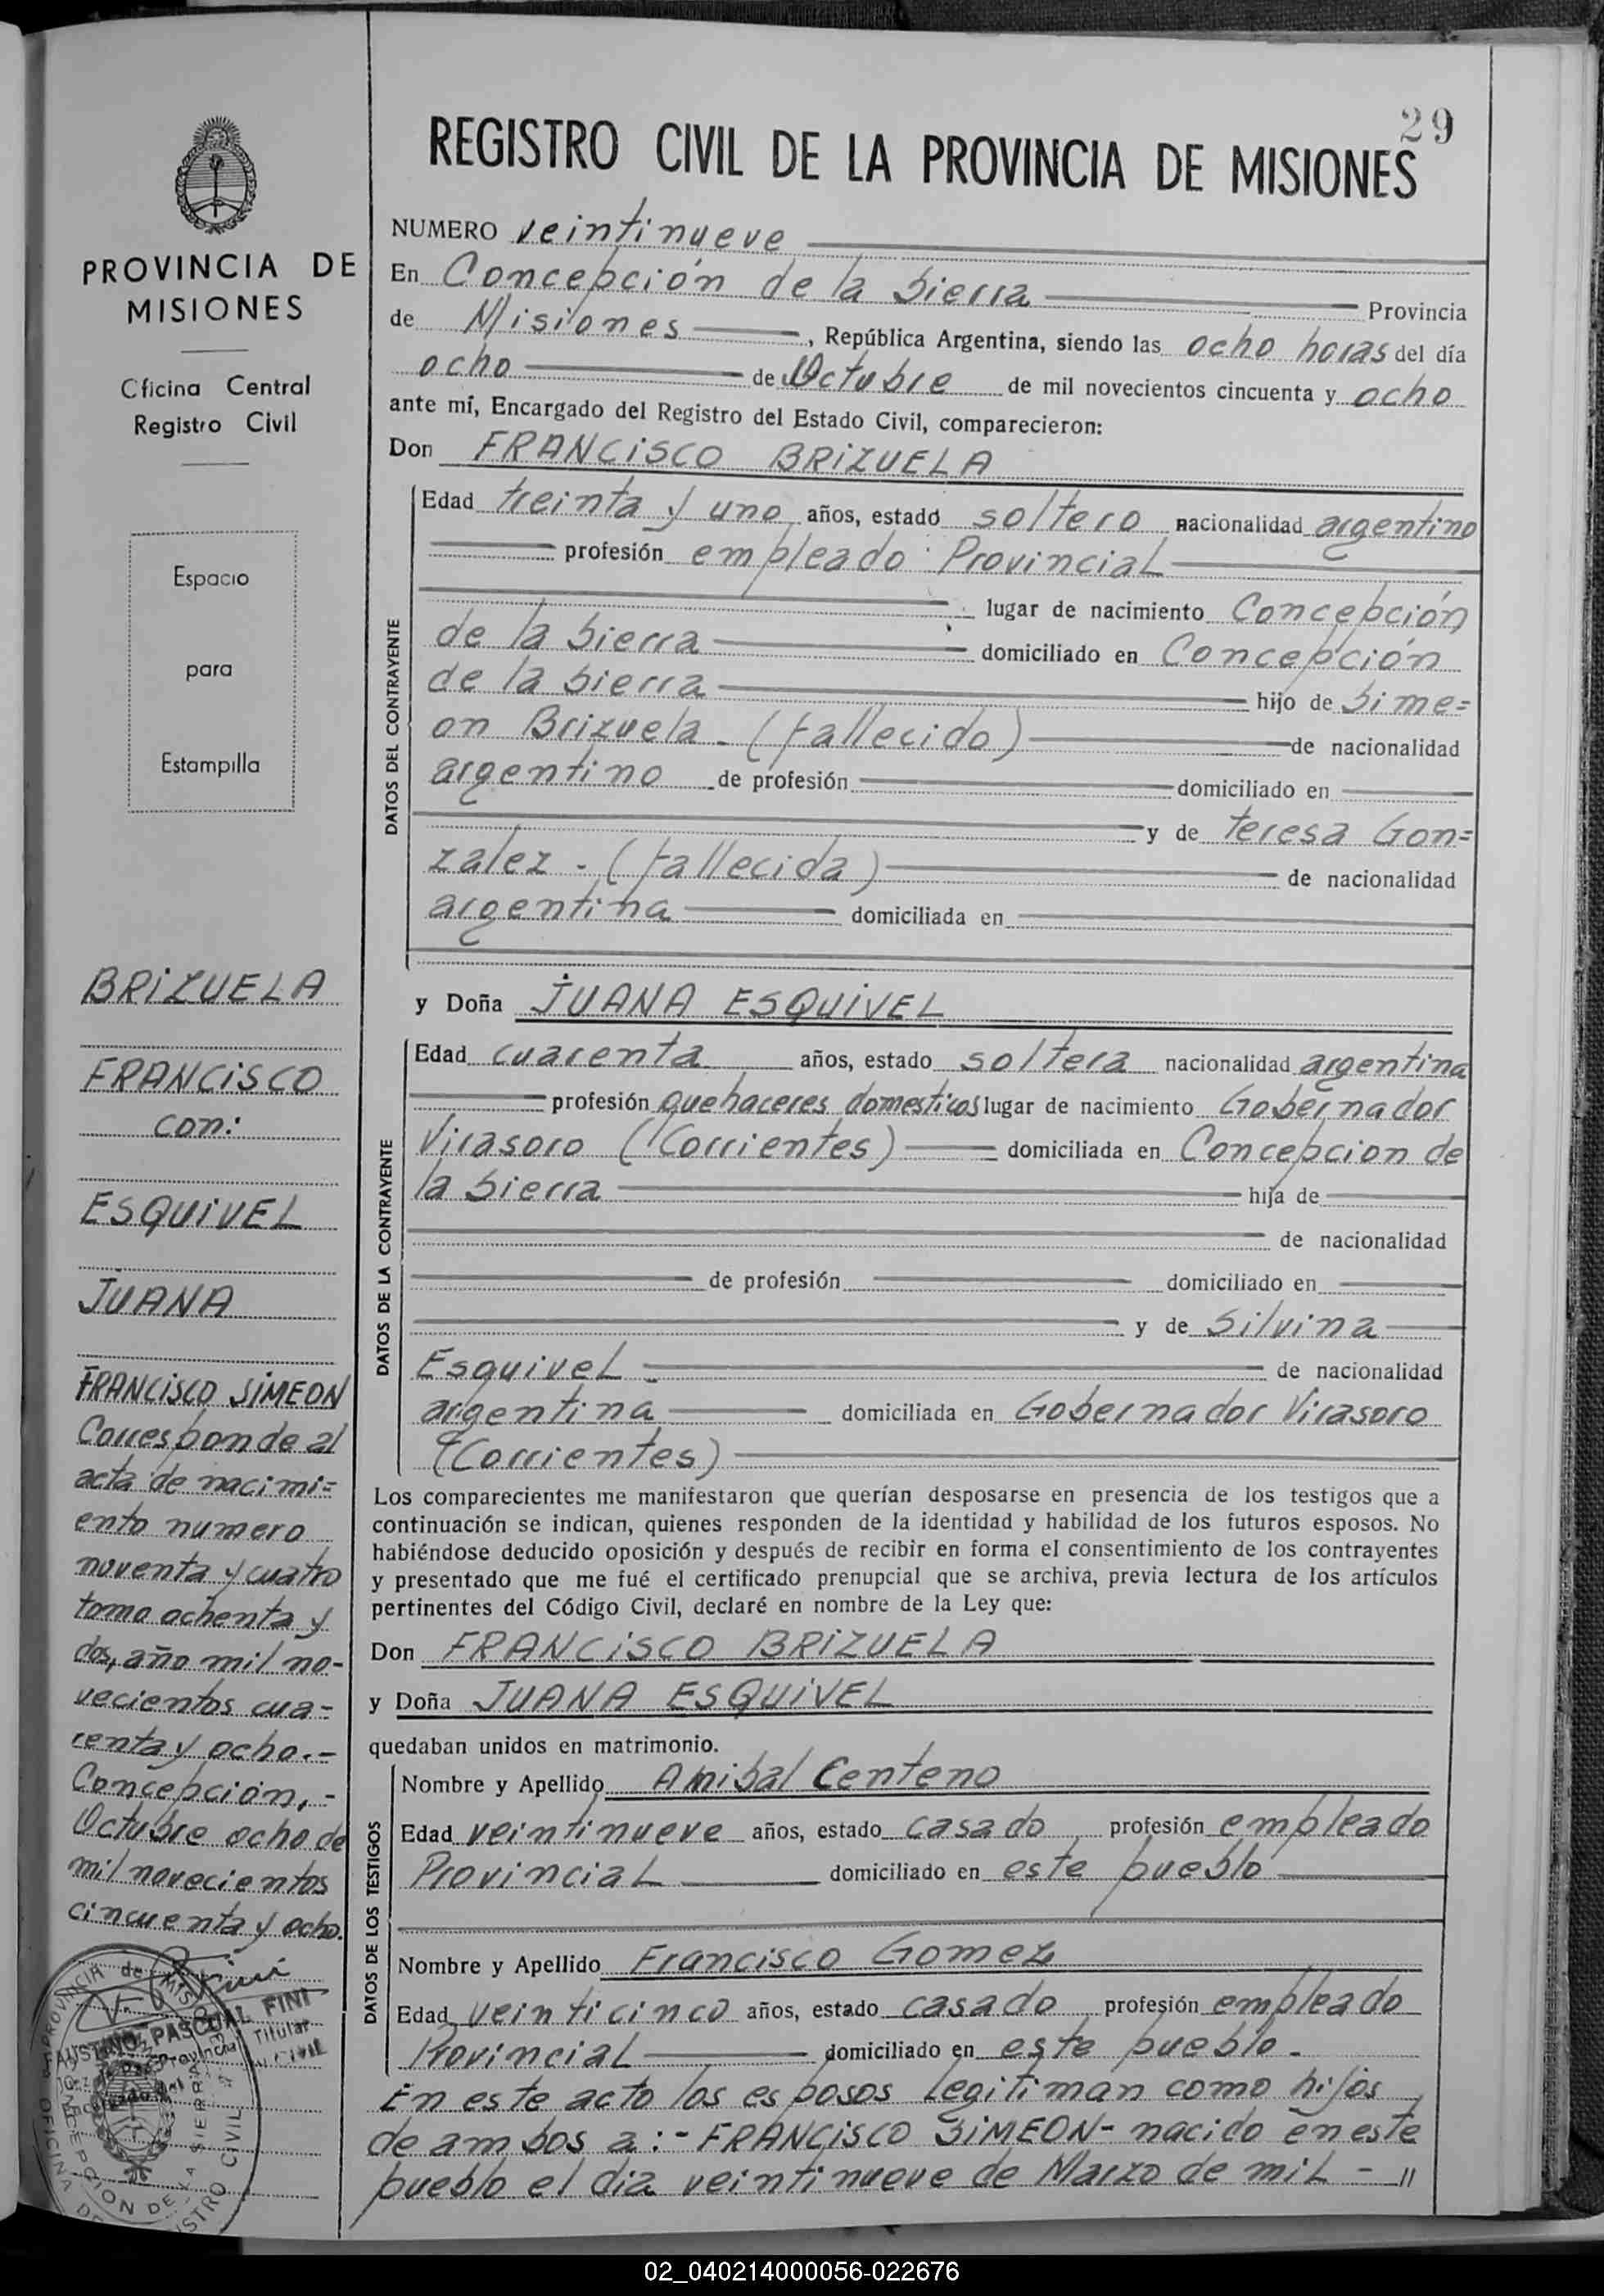 29
REGISTRO CIVIL DE LA PROVINCIA DE MISIONES
PROVINCIA DE
MISIONES
Oficina Central
Registro Civil
Espacio
para
Estampilla
BRIZUELA
FRANCISCO
con:
ESQUIVEL
JUANA
FRANCISCO SIMEON
Corresponde al
acta de nacimi=
ento numero
noventa y cuatro
tomo ochenta y
dos, año mil no-
vecientos cua=
renta y ocho.-
Concepción,-
Octubre ocho de
mil novecientos
cincuenta y ocho.
PASCUAL FINI
Titular
PROVINCIA de MISIONES
CONCEPCION DE LA SIERRA
OFICINA REGISTRO CIVIL
NUMERO veintinueve
En Concepción de la Sierra Provincia
de Misiones, República Argentina, siendo las ocho horas del día
ocho de Octubre de mil novecientos cincuenta y ocho
ante mí, Encargado del Registro del Estado Civil, comparecieron:
Don FRANCISCO BRIZUELA
DATOS DEL CONTRAYENTE
Edad treinta y uno años, estado soltero nacionalidad argentino
profesión empleado Provincial
lugar de nacimiento Concepción
de la Sierra domiciliado en Concepción
de la Sierra hijo de Sime=
on Brizuela - (fallecido) de nacionalidad
argentino de profesión domiciliado en
y de teresa Gon=
zalez - (fallecida) de nacionalidad
argentina domiciliada en
y Doña JUANA ESQUIVEL
DATOS DE LA CONTRAYENTE
Edad cuarenta años, estado soltera nacionalidad argentina
profesión quehaceres domesticos lugar de nacimiento Gobernador
Virasoro (Corrientes) domiciliada en Concepcion de
la Sierra hija de
de nacionalidad
de profesión domiciliado en
y de Silvina
Esquivel - de nacionalidad
argentina domiciliada en Gobernador Virasoro
(Corrientes)
Los comparecientes me manifestaron que querían desposarse en presencia de los testigos que a
continuación se indican, quienes responden de la identidad y habilidad de los futuros esposos. No
habiéndose deducido oposición y después de recibir en forma el consentimiento de los contrayentes
y presentado que me fué el certificado prenupcial que se archiva, previa lectura de los artículos
pertinentes del Código Civil, declaré en nombre de la Ley que:
Don FRANCISCO BRIZUELA
y Doña JUANA ESQUIVEL
quedaban unidos en matrimonio.
DATOS DE LOS TESTIGOS
Nombre y Apellido Anibal Centeno
Edad veintinueve años, estado casado profesión empleado
Provincial domiciliado en este pueblo
Nombre y Apellido Francisco Gomez
Edad veinticinco años, estado casado profesión empleado
Provincial domiciliado en este pueblo.
En este acto los esposos Legitiman como hijos
de ambos a:- FRANCISCO SIMEON- nacido en este
pueblo el dia veintinueve de Marzo de mil - "
02_040214000056-022676